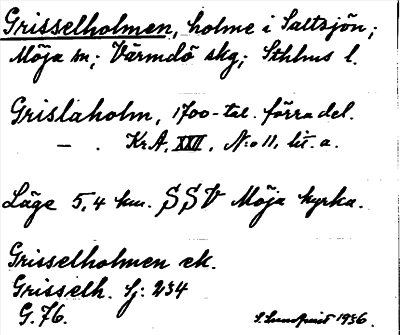 Grisselholmen, holme i Saltsjön;
Möja sn; Värmdö skg; Sthlms l.
Grislaholm, 1700-tal. förra del.
— . Kr.A, XXII, N:o 11, lit. a.
Läge 5,4 km. SSV Möja kyrka.
Grisselholmen ek.
Grisselh. Sj: 234
G. 76.
S. Lundqvist 1936.